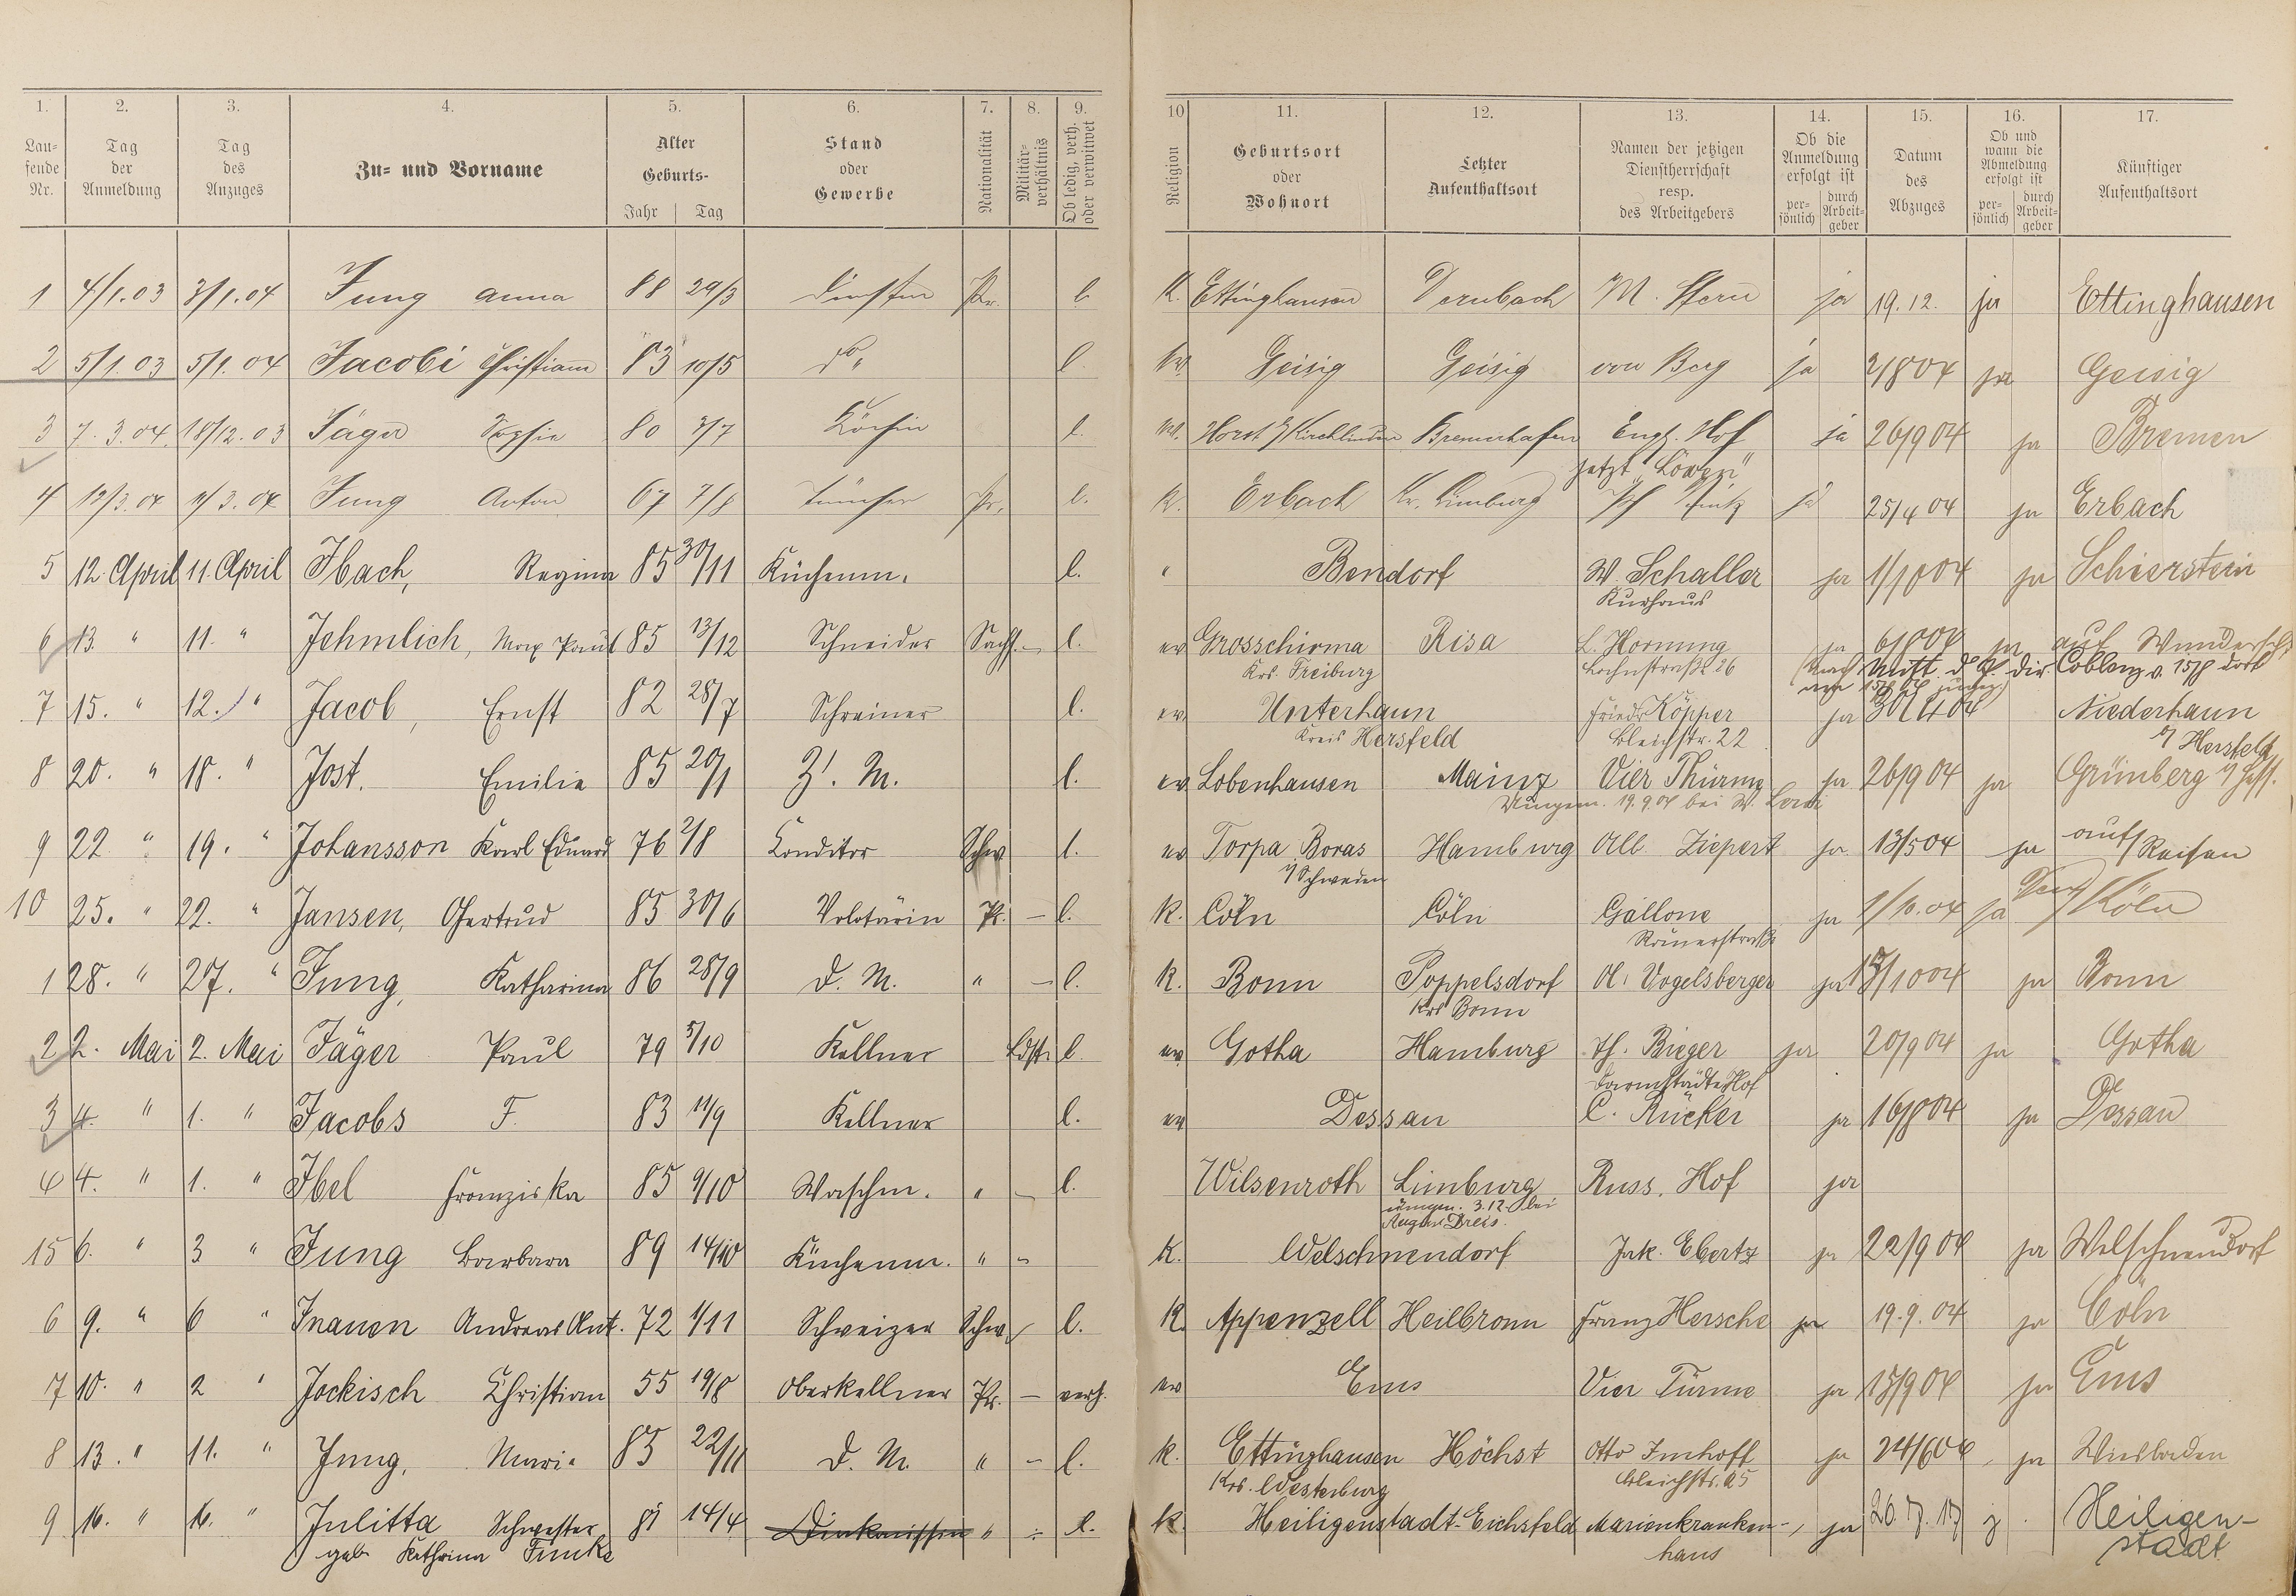 1. 2. 3. 4. 5. 6. 7. 8. 9. 10 11. 12. 13. 14. 15. 16. 17.
Laufende Nr. Tag der Anmeldung Tag des Anzuges Zu- und Vorname Alter Geburts- Jahr Tag Stand oder Gewerbe Nationalität Militärverhältnis Ob ledig, verh. oder verwitwet Religion Geburtsort oder Wohnort Letzter Aufenthaltsort Namen der jetzigen Dienstherrschaft resp. des Arbeitgebers Ob die Anmeldung erfolgt ist persönlich durch Arbeitgeber Datum des Abzuges Ob und wann die Abmeldung erfolgt ist persönlich durch Arbeitgeber Künftiger Aufenthaltsort
1 4/1.03 3/1.04 Jung anna 88 29/3 Pr. l. K. Ettinghausen Dernbach M. Stern ja 19.12. ja Ettinghausen
2 5/1.03 5/1.04 Jacobi Christiane 83 10/5 do l. ev. Geisig Geisig von Berg ja 2/8 04 ja Geisig
3 7.3.04 18/12.03 Jäger Sophie 80 3/7 Köchin l. Horst Bremerhafen Engl. Hof ja 26/9 04 ja Bremen
jetzt "Löwen"
4 12/3.04 3.04 Jung Anton 67 7/8 Tüncher Pr. l. K. Erbach Kr. Limburg ja 25/4 04 ja Erbach
5 12. April 11. April Ibach, Regina 85 30/11 Küchenm. l. " Bendorf W. Schaller ja 1/10 04 ja Schierstein
Kurhaus
6 13. " 11. " Jehmlich, Max Paul 85 13/12 Schneider Sachs. – l. ev Grosschirma Risa L. Hornung ja 6/8 04 ja auf Wandersch.
Krs. Freiburg 26
7 15. " 12. " Jacob, Ernst 82 28/7 Schreiner l. ev. Unterhaun Friedr. Köpper ja 30/4 04 Niederhaun
Kreis Hersfeld Bleichstr. 22 b/ Hersfeld
8 20. " 18. " Jost. Emilie 85 20/1 Z. M. l. ev. Lobenhausen Mainz Vier Thürme ja 26/9 04 ja Grünberg i/ Hess.
19.9.04 bei W.
9 22. " 19. " Johansson Karl Eduard 76 2/8 Conditor Schw l. ev Torpa Boras Hamburg Alb. Ziepert ja 13/5 04 ja auf Reisen
i/ Schweden
10 25. " 22. " Jansen, Gertrud 85 30/6 Volotärin Pr. – l. K. Cöln Cöln Gallone ja 1/10.04 ja Köln
Römerstraße
1 28. " 27. " Jung, Katharina 86 28/9 D. M. " – l. K. Bonn Poppelsdorf Vogelsberger ja /10 04 ja Bonn
Krs Bonn
2 2. Mai 2. Mai Jäger Paul 79 5/10 Kellner Ldst. l. ev. Gotha Hamburg Th. Bieger ja 20/9 04 ja Gotha
Darmstädter Hof
3 4. " 1. " Jacobs F. 83 11/9 Kellner l. ev Dessau C. Rücker ja 16/8 04 ja Dessau
4 4. " 1. " Ibel Franziska 85 9/10 Waschm. " – l. Wilsenroth Limburg Russ. Hof ja
3.12. bei
August Dreis.
15 6. " 3 " Jung Barbara 89 14/10 Küchenm. " – K. Welschnendorf Jak. Ebertz ja 22/9 04 ja Welschneudorf
6 9. " 6 " Inauen Andreas Ant. 72 1/11 Schweizer Schw. l. K. Appenzell Heilbronn Franz Hersche ja 19.9.04 ja Cöln
7 10. " 2 " Jockisch Christian 55 19/8 Oberkellner Pr. – verh. ev Ems Vier Türme ja 15/9 04 ja Ems
8 13. " 11. " Jung, Marie 85 22/11 D. M. " – l. k. Ettinghausen Höchst Otto Imhoff ja 24/6 04 ja Wiesbaden
Krs. Westerburg Bleichstr. 25
9 16. " 16. " Julitta Schwester 81 14/4 Diakonissin " – l. k. Heiligenstadt-Eichsfeld Marienkranken- ja 26.7.17 j. Heiligen-
geb. Kathrina Funke haus stadt